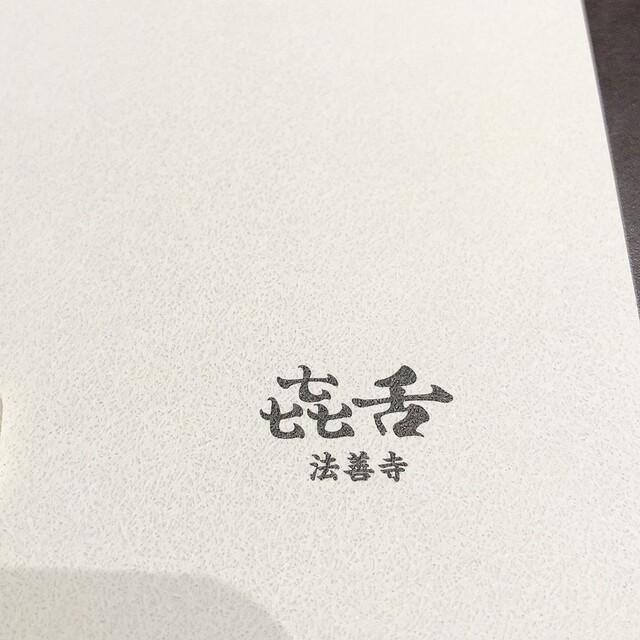 㐂舌
法善寺